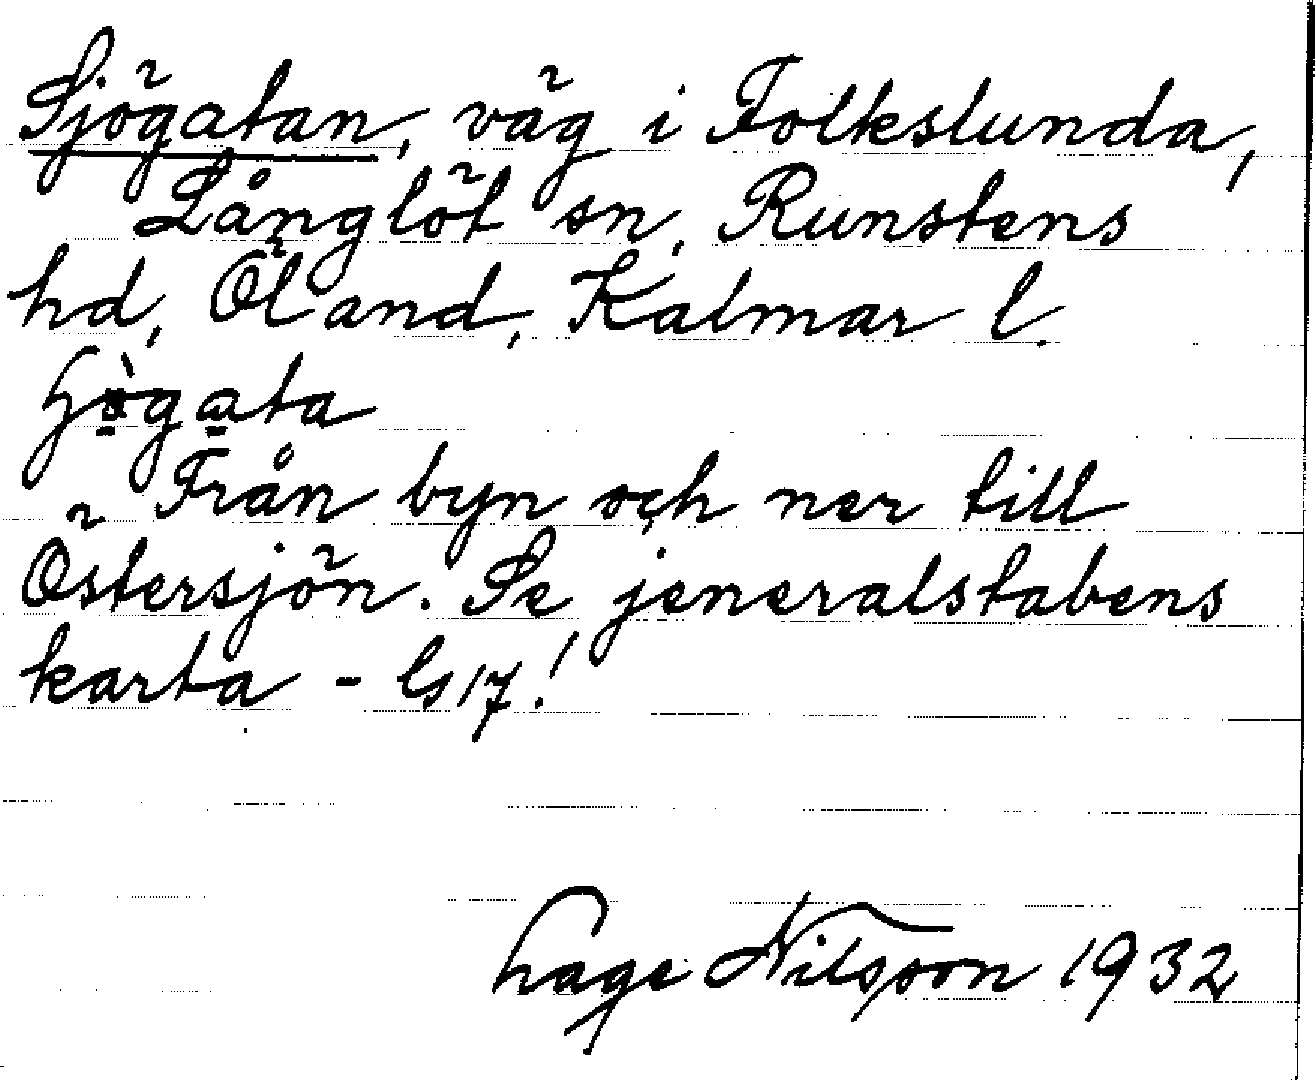 Sjögatan, väg i Folkslunda,
Långlöt sn, Runstens
hd, Öland, Kalmar l.
Från byn och ner till
Östersjön. Se jeneralstabens
karta - !
Hage Nilsson 1932